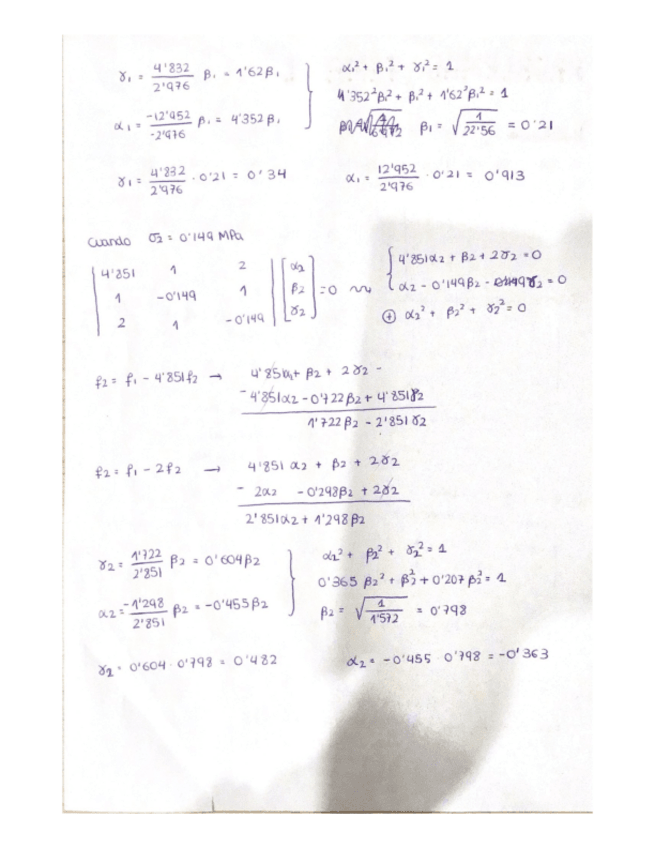 γ₁ = 4'832/2'976 β₁ = 1'62β₁
α₁ = -12'952/-2'976 β₁ = 4'352β₁
α₁² + β₁² + γ₁² = 1
4'352²β₁² + β₁² + 1'62²β₁² = 1
β₁ = √(1/22'56) = 0'21
γ₁ = 4'832/2'976 · 0'21 = 0'34 α₁ = 12'952/2'976 · 0'21 = 0'913
Cuando σ₂ = 0'149 MPa
| 4'851 1 2 | [α₂]
| 1 -0'149 1 | [β₂] = 0
| 2 1 -0'149 | [γ₂]
4'851α₂ + β₂ + 2γ₂ = 0
α₂ - 0'149β₂ - γ₂ = 0
⊕ α₂² + β₂² + γ₂² = 0
f₂ = f₁ - 4'851f₂ → 4'851α₂ + β₂ + 2γ₂ -
- 4'851α₂ - 0'722β₂ + 4'851γ₂
1'722β₂ - 2'851γ₂
f₂ = f₁ - 2f₂ → 4'851α₂ + β₂ + 2γ₂
- 2α₂ - 0'298β₂ + 2γ₂
2'851α₂ + 1'298β₂
γ₂ = 1'722/2'851 β₂ = 0'604β₂
α₂ = -1'298/2'851 β₂ = -0'455β₂
α₂² + β₂² + γ₂² = 1
0'365β₂² + β₂² + 0'207β₂² = 1
β₂ = √(1/1'572) = 0'798
γ₂ = 0'604 · 0'798 = 0'482 α₂ = -0'455 · 0'798 = -0'363